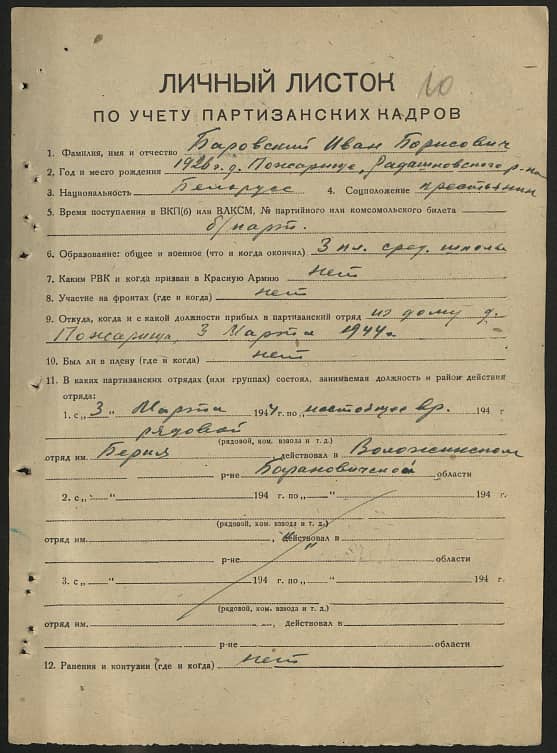 ЛИЧНЫЙ ЛИСТОК 10
ПО УЧЕТУ ПАРТИЗАНСКИХ КАДРОВ
1. Фамилия, имя и отчество Баровский Иван Борисович
2. Год и место рождения 1926 г. д. Пожарище, Радашковского р-на
3. Национальность Беларусс 4. Соцположение крестьянин
5. Время поступления в ВКП(б) или ВЛКСМ, № партийного или комсомольского билета
б/парт.
6. Образование: общее и военное (что и когда окончил) 3 кл. сред. школы
7. Каким РВК и когда призван в Красную Армию нет
8. Участие на фронтах (где и когда) нет
9. Откуда, когда и с какой должности прибыл в партизанский отряд из дому д.
Пожарища, 3 Марта 1944г.
10. Был ли в плену (где и когда) нет
11. В каких партизанских отрядах (или группах) состоял, занимаемая должность и район действия
отряда:
1. с „ 3 " Марта 1944 г. по „ настоящее вр. 194 г
рядовой
(рядовой, ком. взвода и т. д.)
отряд им. Берия действовал в Воложинском
р-не Барановичской области
2. с „ " 194 г. по „ " 194 г.
(рядовой, ком. взвода и т. д.)
отряд им. , действовал в
р-не области
3. с „ " 194 г. по „ " 194 г.
(рядовой, ком. взвода и т. д.)
отряд им. , действовал в
р-не области
12. Ранения и контузии (где и когда) нет